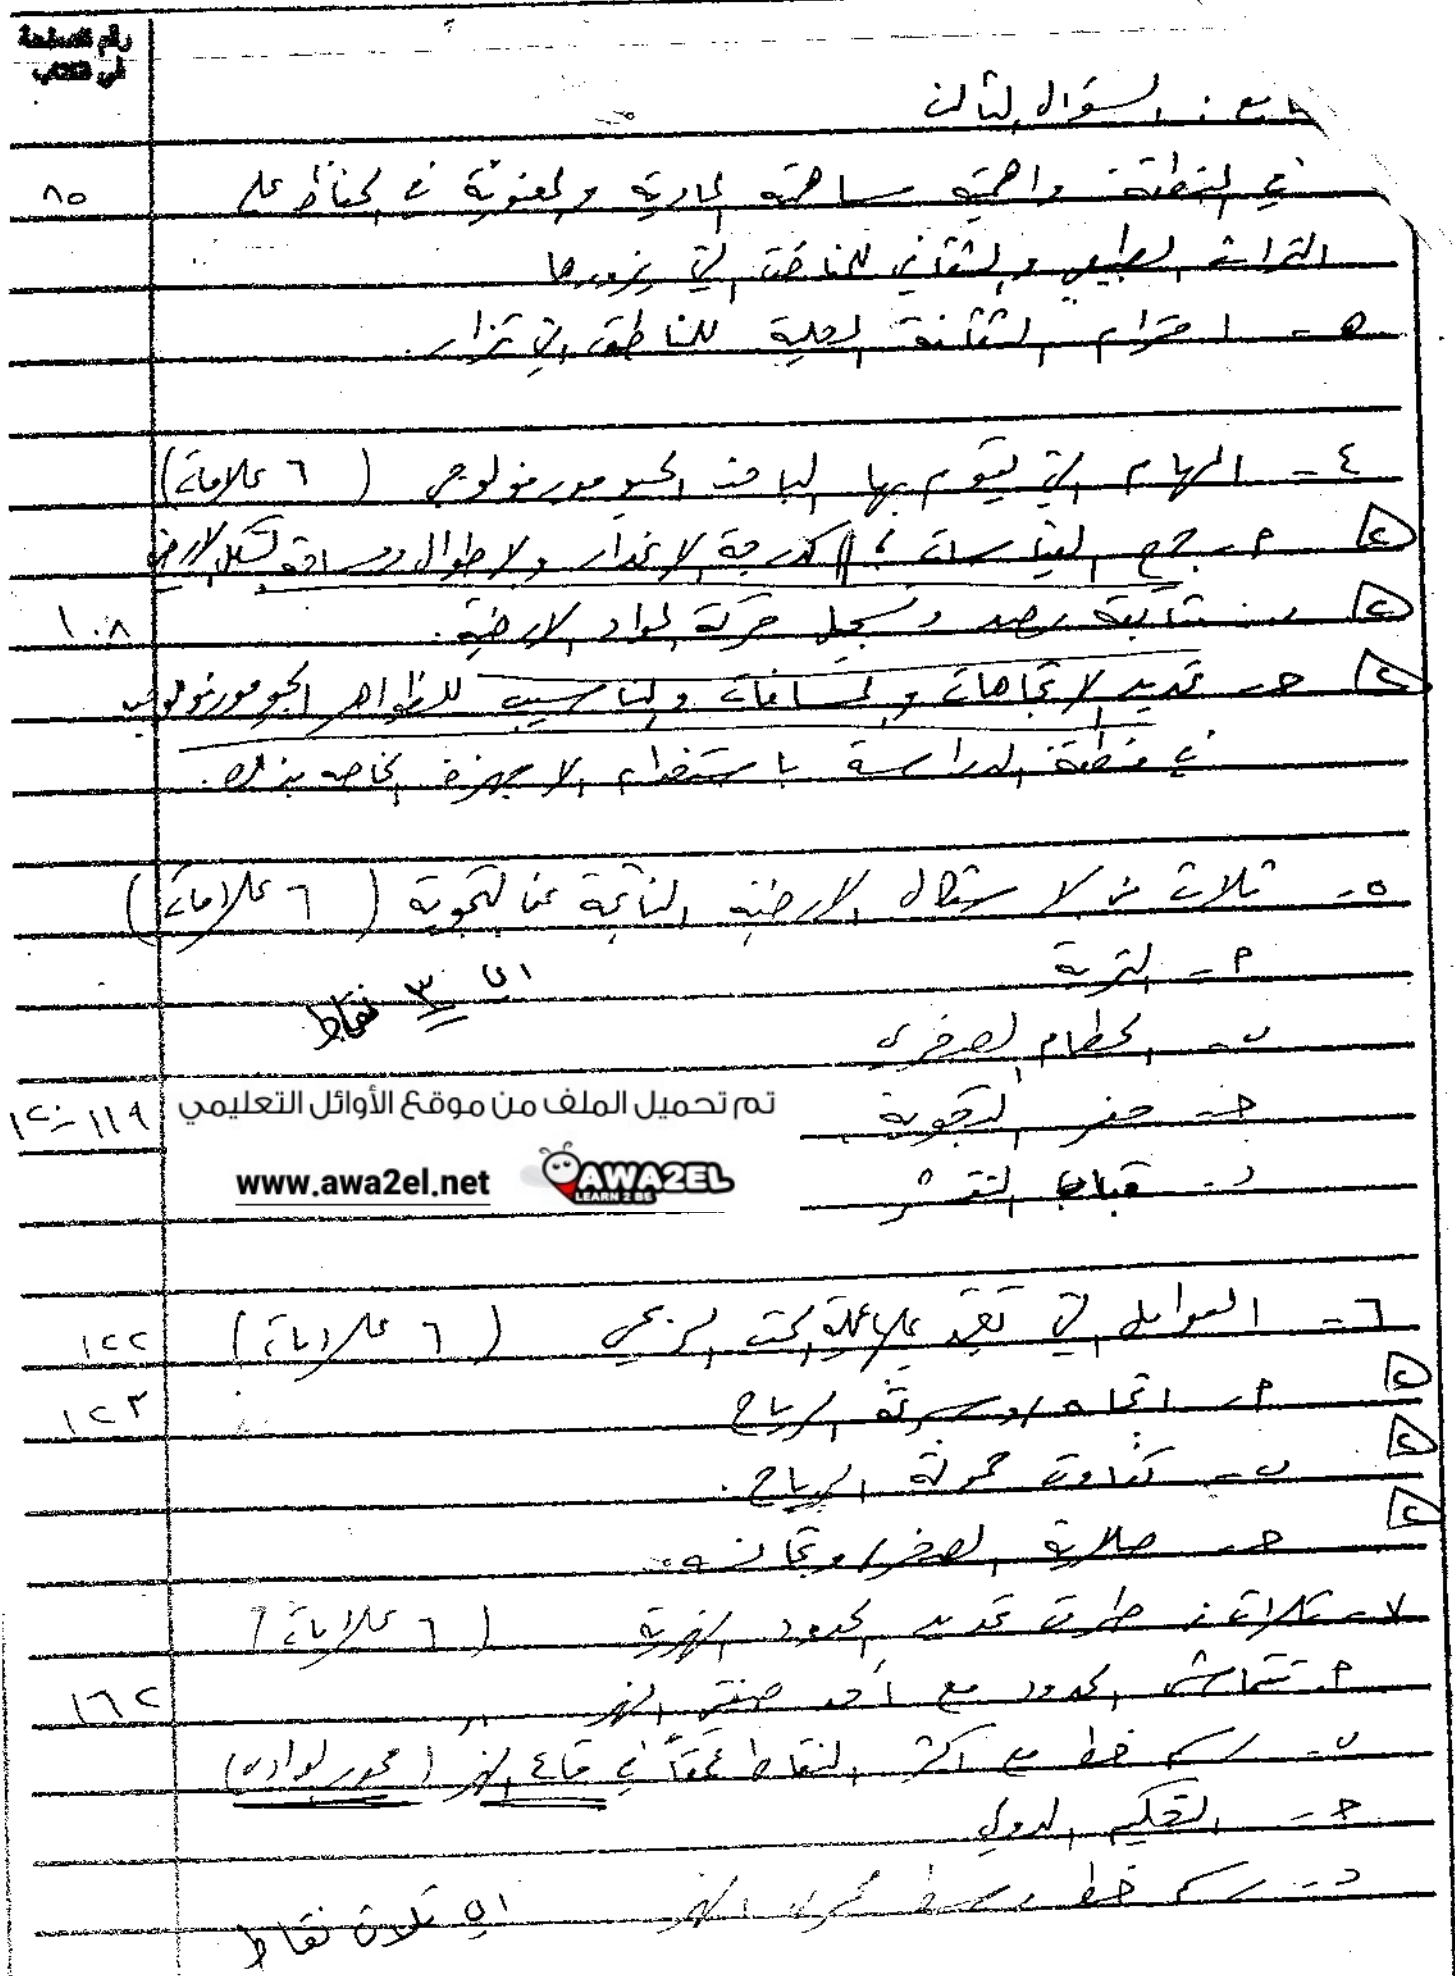 رقم الصفحة
في الكتاب
تابع : السؤال الثالث
في المنطقة واهمية مساهمته المادية والمعنوية في الحفاظ على
٨٥
التراث الطبيعي والثقافي للمناطق التي يزورها
هـ - احترام الثقافة المحلية للمناطق التي تزار .
٤ - المهام التي يقوم بها الباحث الجيومورفولوجي ( ٦ علامات )
٢ أ - جمع القياسات ؛ كدرجة الانحدار والاطوال ومساحة لشكل الارض
٢ ب - متابعة رصد وتسجيل حركة المواد الارضية .
١٠٨
٢ جـ - تحديد الاتجاهات والمسافات والمناسيب للظواهر الجيومورفولوجية
في منطقة الدراسة باستخدام الاجهزة الخاصة بذلك .
٥ - ثلاث من الاشكال الارضية الناتجة عن التجوية ( ٦ علامات )
أ - التربة
اي ٣ نقاط
ب - الحطام الصخري
تم تحميل الملف من موقع الأوائل التعليمي
جـ - حفر التجوية
١١٩ - ١٢٠
www.awa2el.net
AWA2EL
LEARN 2 BE
د - قباب التقشر
٦ - العوامل التي تعتمد عليها عملية الحت الريحي ( ٦ علامات )
١٢٢
٢ أ - اتجاه / وسرعة الرياح
١٢٣
٢ ب - تفاوت حمولة الرياح .
٢ جـ - صلابة الصخر / وتجانسه .
٧ - ثلاث من طرق تحديد الحدود النهرية ( ٦ علامات )
أ - تتماشى الحدود مع أحد ضفتي النهر
١٦٢
ب - رسم خط مع اكثر النقاط عمقاً في قاع النهر ( محور الوادي )
جـ - التحكيم الدولي
د - رسم خط وسط مجرى النهر
اي ثلاث نقاط